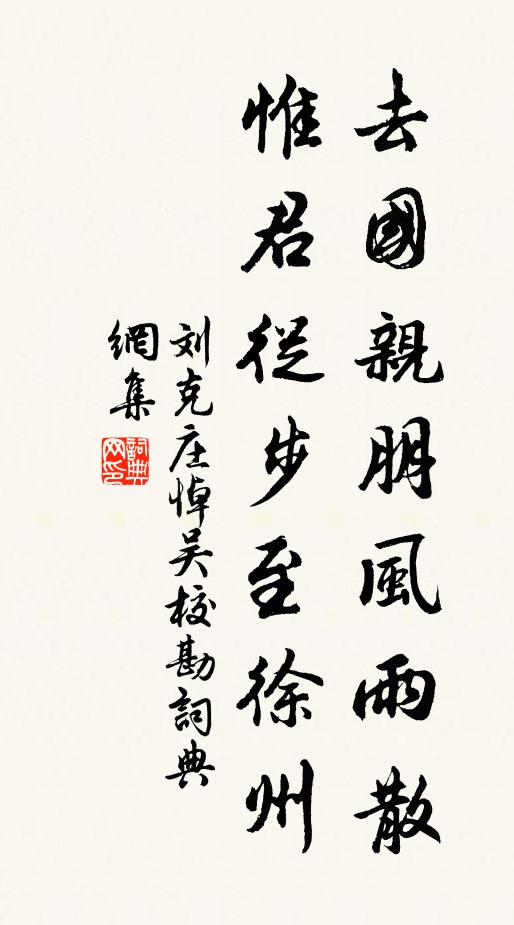 去國親朋風雨散
惟君從步至徐州
刘克庄悼吴校勘詞典
網集
詞典网印